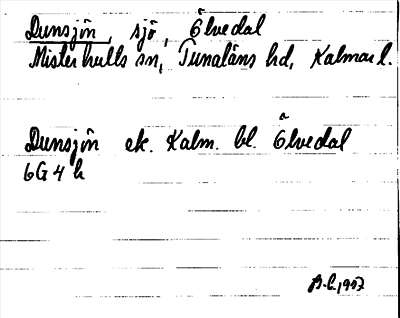 Dunsjön, sjö, Ålvedal
Misterhults sn, Tunaläns hd, Kalmar l.
Dunsjön ek. Kalm. bl. Ålvedal
6G4h
1957